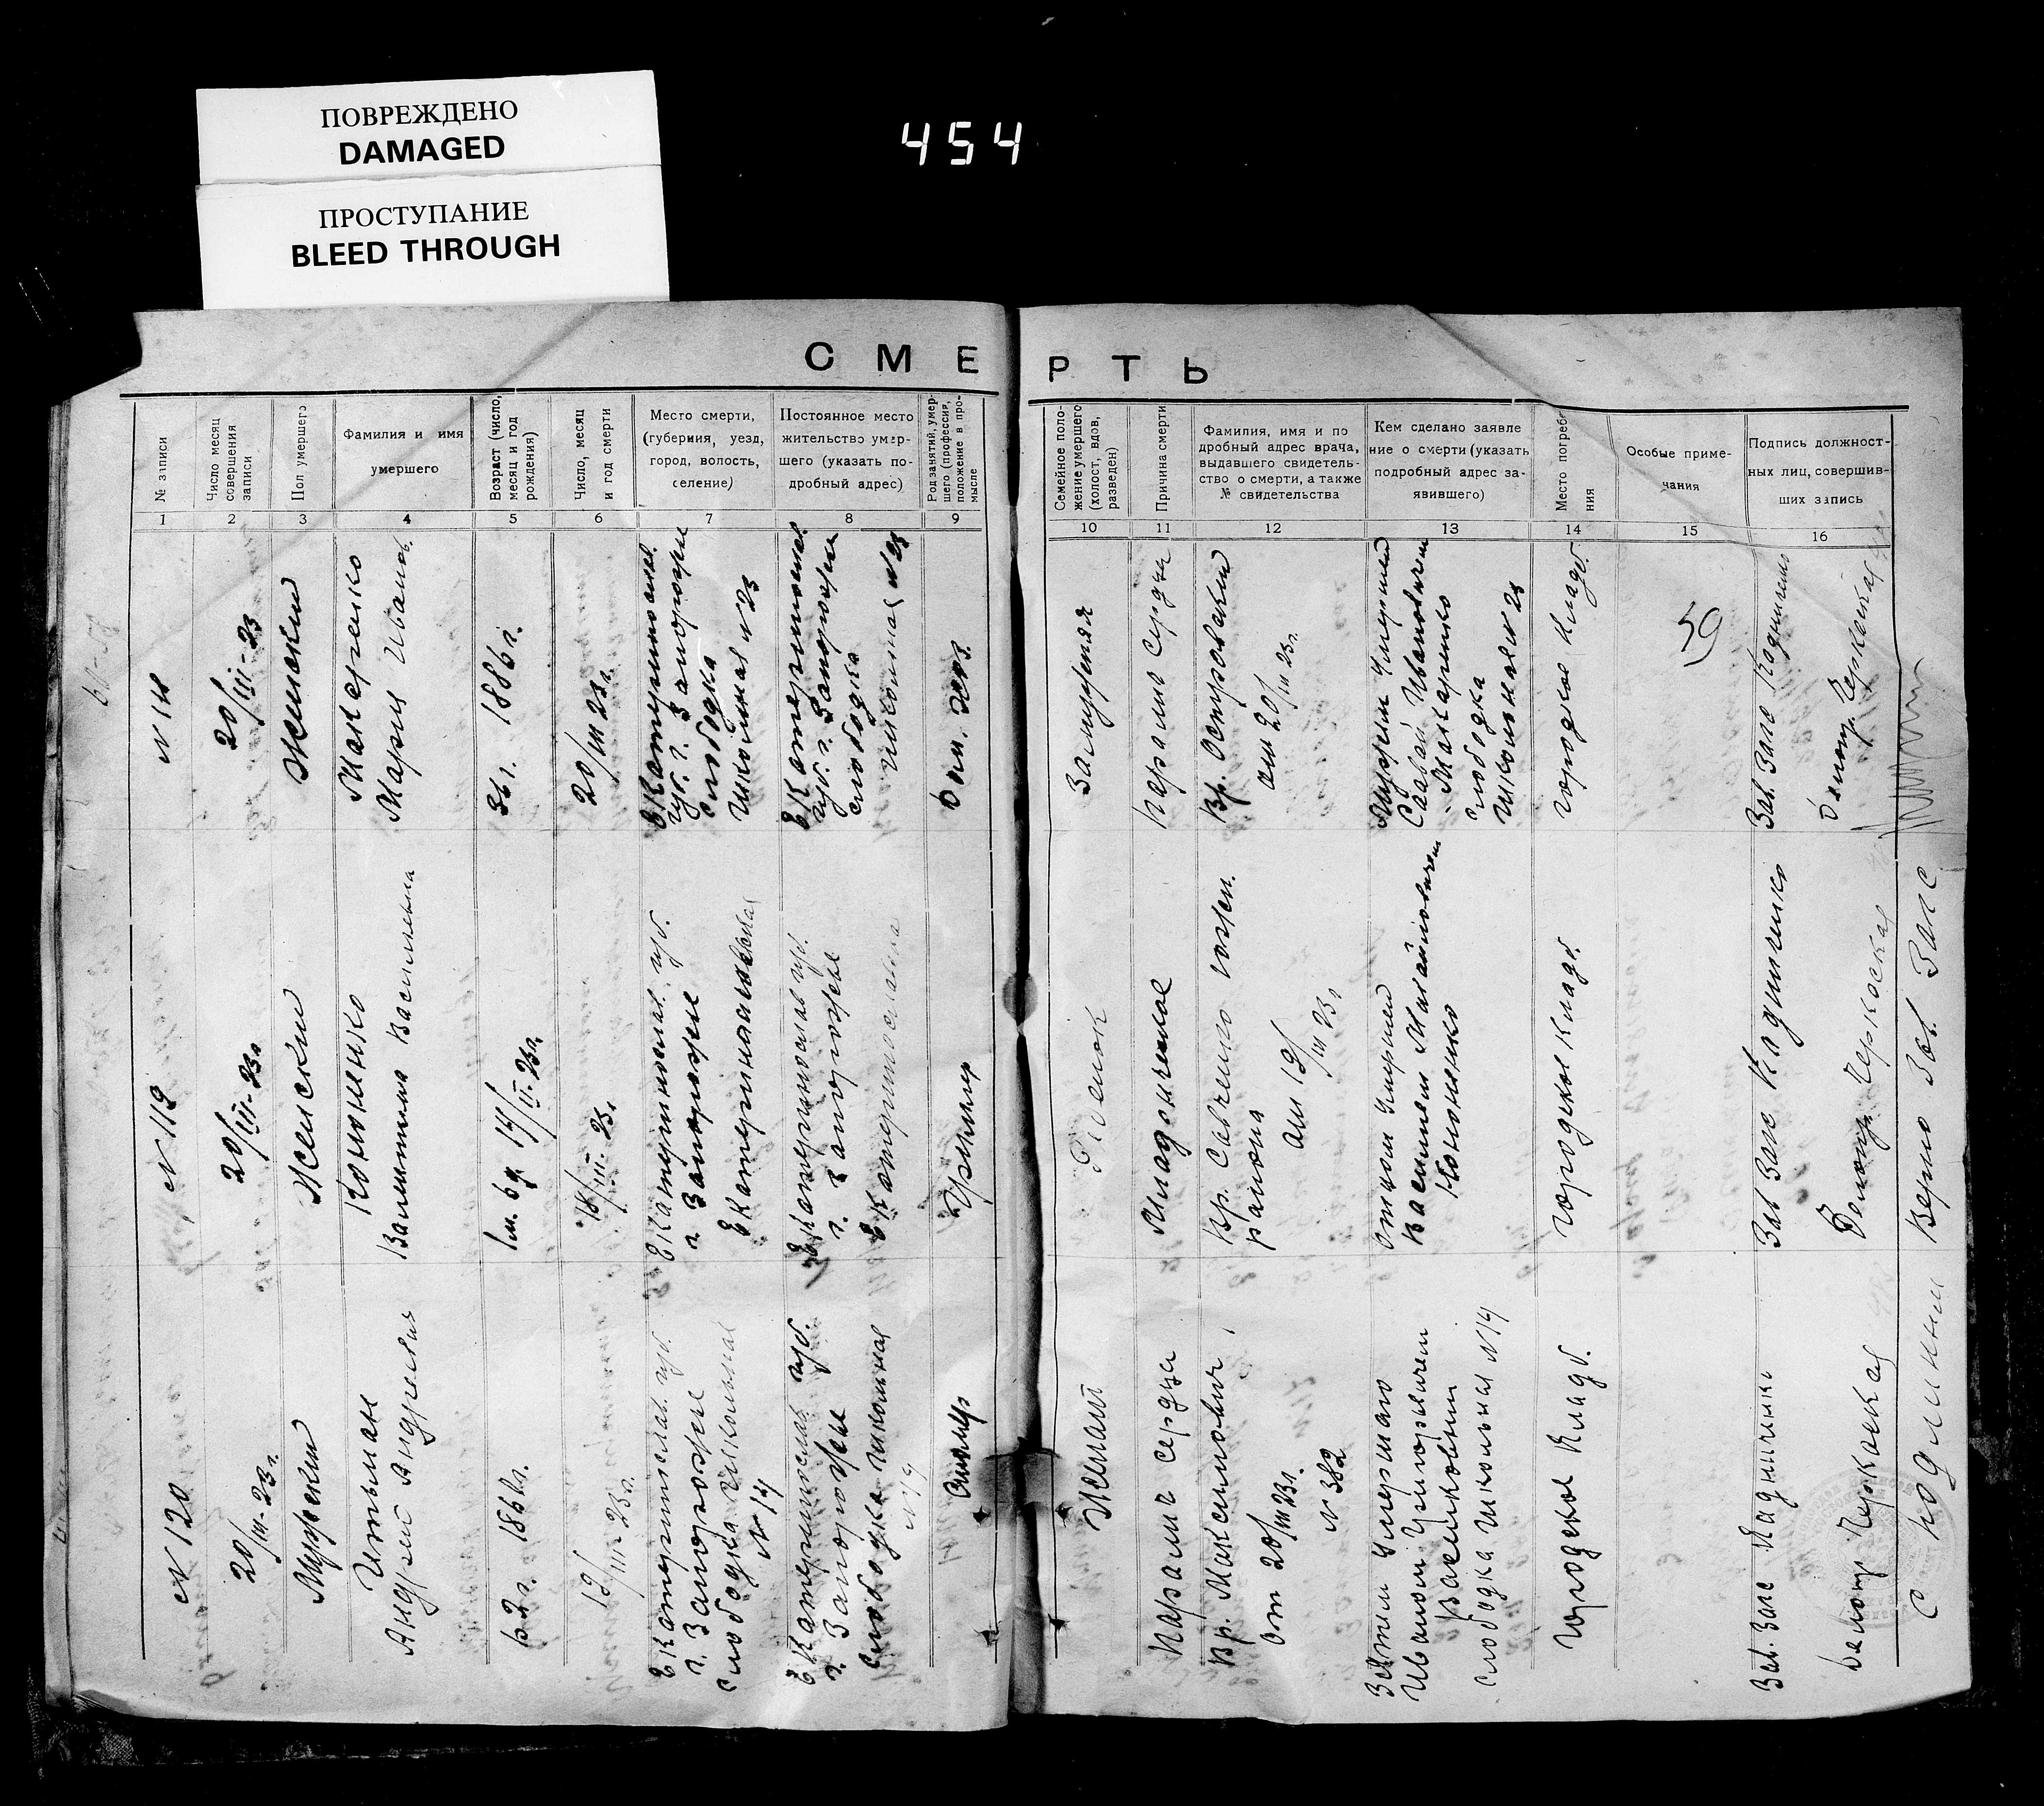 ПОВРЕЖДЕНО
DAMAGED
ПРОСТУПАНИЕ
BLEED THROUGH
454
СМЕРТЬ
№ записи
Число месяц
совершения
записи
Пол умершего
Фамилия и имя
умершего
Возраст (число,
месяц и год
рождения)
Число, месяц
и год смерти
Место смерти,
(губерния, уезд,
город, волость,
селение)
Постоянное место
жительство умер-
шего (указать по-
дробный адрес)
Род занятий, умер-
шего (профессия,
положение в про-
мысле
Семейное поло-
жение умершего
(холост, вдов,
разведен)
Причина смерти
Фамилия, имя и по
дробный адрес врача,
выдавшего свидетель-
ство о смерти, а также
№ свидетельства
Кем сделано заявле
ние о смерти (указать
подробный адрес за-
явившего)
Место погребе
ния
Особые приме-
чания
Подпись должност-
ных лиц, совершив-
ших запись
1 2 3 4 5 6 7 8 9 10 11 12 13 14 15 16
20/III-23
Женский
Макаренко
Мария Иванов.
36 г. 1886 г.
20/III 23 г.
Екатеринослав.
губ. г. Запорожье
слободка
Школьная № 23
Екатеринослав.
губ. г. Запорожье
слободка
Школьная № 23
Дом. хоз.
Замужняя
Паралич сердца
Вр. Островский
от 20/III 23 г.
Мужем умершей
Саввой Ивановичем
Макаренко
слободка
Школьная № 23
городское кладб.
59
Зав. Загс
Делопр. Черкаская
№ 119
20/III-23 г.
Женский
Кононенко
Валентина Васильевна
1 м. 6 д. 14/II-23 г.
18/III-23 г.
Екатеринослав. губ.
г. Запорожье
Екатеринославская
Екатеринослав губ.
г. Запорожье
Екатеринославская
Ребенок
Младенческое
Вр. Савченко
района
от 19/III 23 г
Отцом умершей
Василием Михайловичем
Кононенко
городское кладб.
Зав Загс
Делопр. Черкаская
№ 120
20/III-23 г.
Мужской
Андрей Андреевич
62 г. 1861 г.
19/III-23 г.
Екатеринослав. губ.
г. Запорожье
слободка Школьная
№ 14
Екатеринослав губ.
г. Запорожье
Слободка Школьная
№ 19
Столяр
Женат
Паралич сердца
Вр. Максимович
от 20/III 23 г.
№ 382
Зятем умершего
Иваном Григоривичем
слободка Школьная № 14
Городское Кладб.
Зав. Загс
Делопр Черкаская
С подлиным Верно Зав. Загс